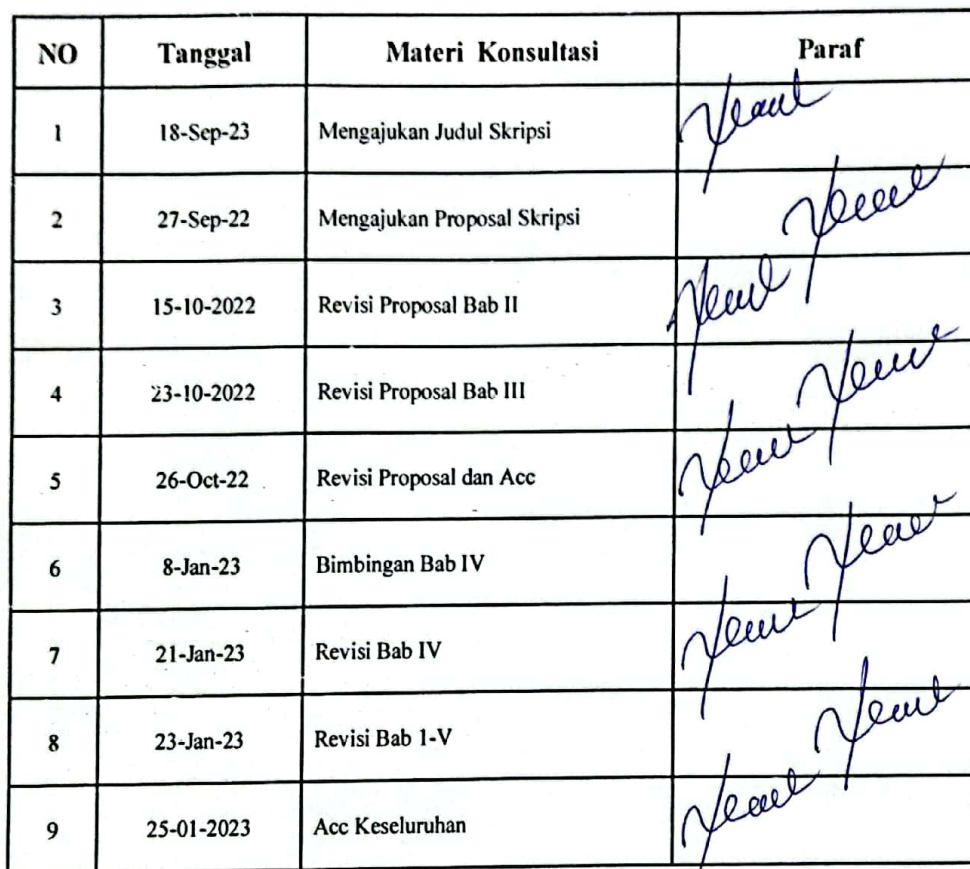 NO Tanggal Materi Konsultasi Paraf
1 18-Sep-23 Mengajukan Judul Skripsi
2 27-Sep-22 Mengajukan Proposal Skripsi
3 15-10-2022 Revisi Proposal Bab II
4 23-10-2022 Revisi Proposal Bab III
5 26-Oct-22 Revisi Proposal dan Acc
6 8-Jan-23 Bimbingan Bab IV
7 21-Jan-23 Revisi Bab IV
8 23-Jan-23 Revisi Bab 1-V
9 25-01-2023 Acc Keseluruhan